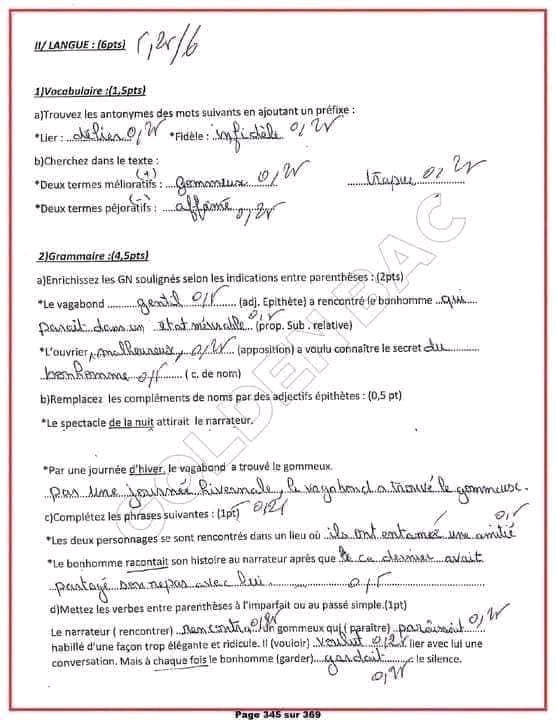 II/ LANGUE : (6pts) 5,25/6
1)Vocabulaire :(1,5pts)
a)Trouvez les antonymes des mots suivants en ajoutant un préfixe :
*Lier : délier 0,25 *Fidèle : infidèle 0,25
b)Cherchez dans le texte :
(+)
*Deux termes mélioratifs : gommeux 0,25 trapu 0,25
(-)
*Deux termes péjoratifs : affamé 0,25
2)Grammaire :(4,5pts)
a)Enrichissez les GN soulignés selon les indications entre parenthèses : (2pts)
*Le vagabond gentil 0,5 (adj. Epithète) a rencontré le bonhomme qui
parait dans un état misérable 0,5 (prop. Sub . relative)
*L'ouvrier , malheureux, 0,25 (apposition) a voulu connaître le secret du
bonhomme 0,5 ( c. de nom)
b)Remplacez les compléments de noms par des adjectifs épithètes : (0,5 pt)
*Le spectacle de la nuit attirait le narrateur.
*Par une journée d'hiver, le vagabond a trouvé le gommeux.
pas une journée hivernale, le vagabond a trouvé le gommeuse.
c)Complétez les phrases suivantes : (1pt) 0,25 0,5
*Les deux personnages se sont rencontrés dans un lieu où ils ont entamée une amitié
*Le bonhomme racontait son histoire au narrateur après que le ce dernier avait
partagé son repas avec lui. 0,5
d)Mettez les verbes entre parenthèses à l'imparfait ou au passé simple.(1pt)
Le narrateur ( rencontrer) rencontra 0,25 un gommeux qui ( paraître) paraissait 0,25
habillé d'une façon trop élégante et ridicule. Il (vouloir) voulut 0,25 lier avec lui une
conversation. Mais à chaque fois le bonhomme (garder) gardait le silence.
0,25
GOLDEN BAC
Page 345 sur 369